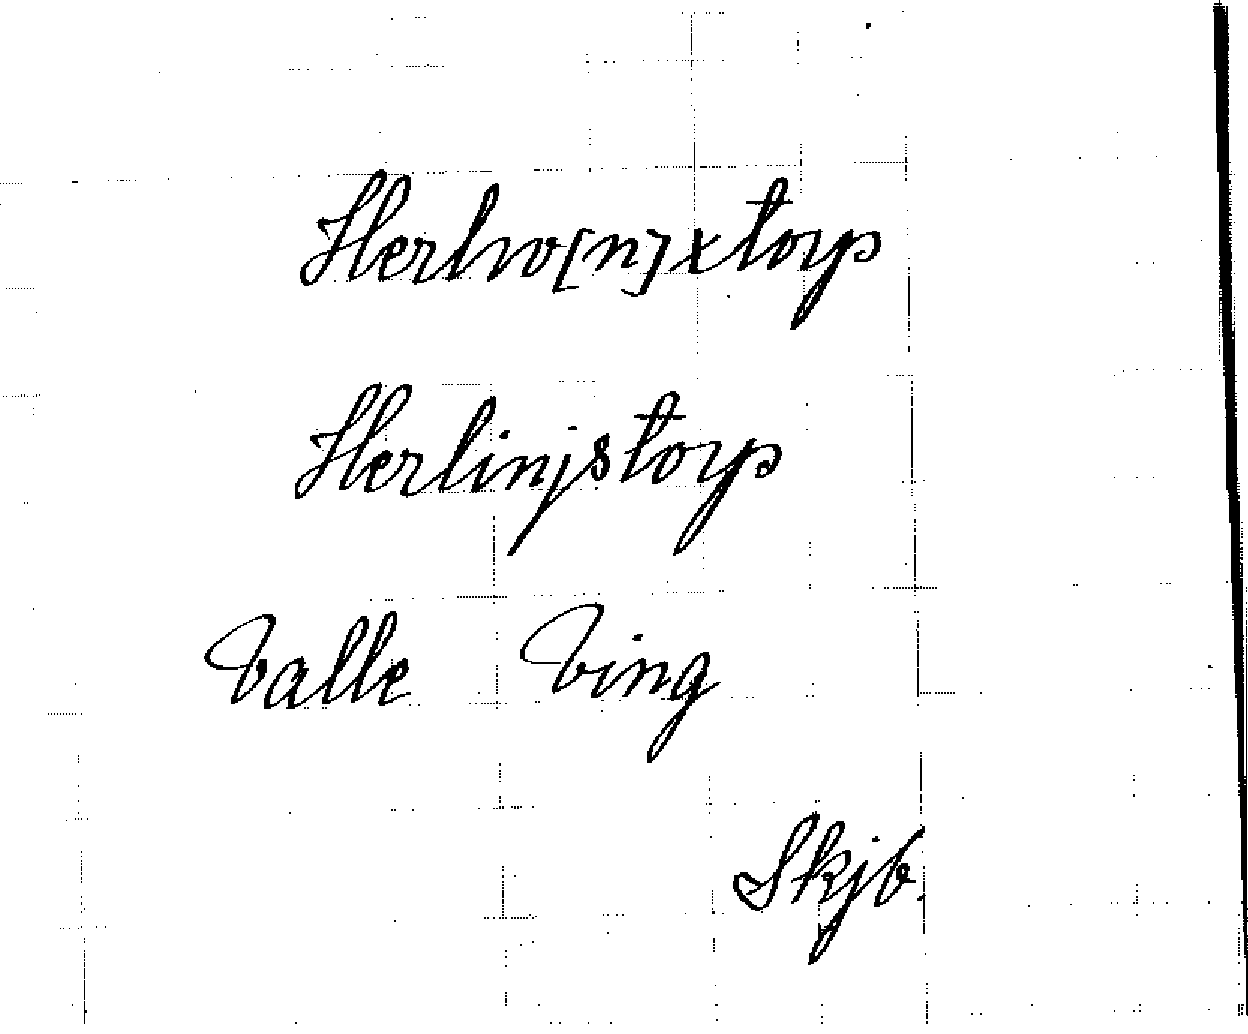 Herlw[n]xtorp
Herlinjstorp
Valle Ving
Skjb.